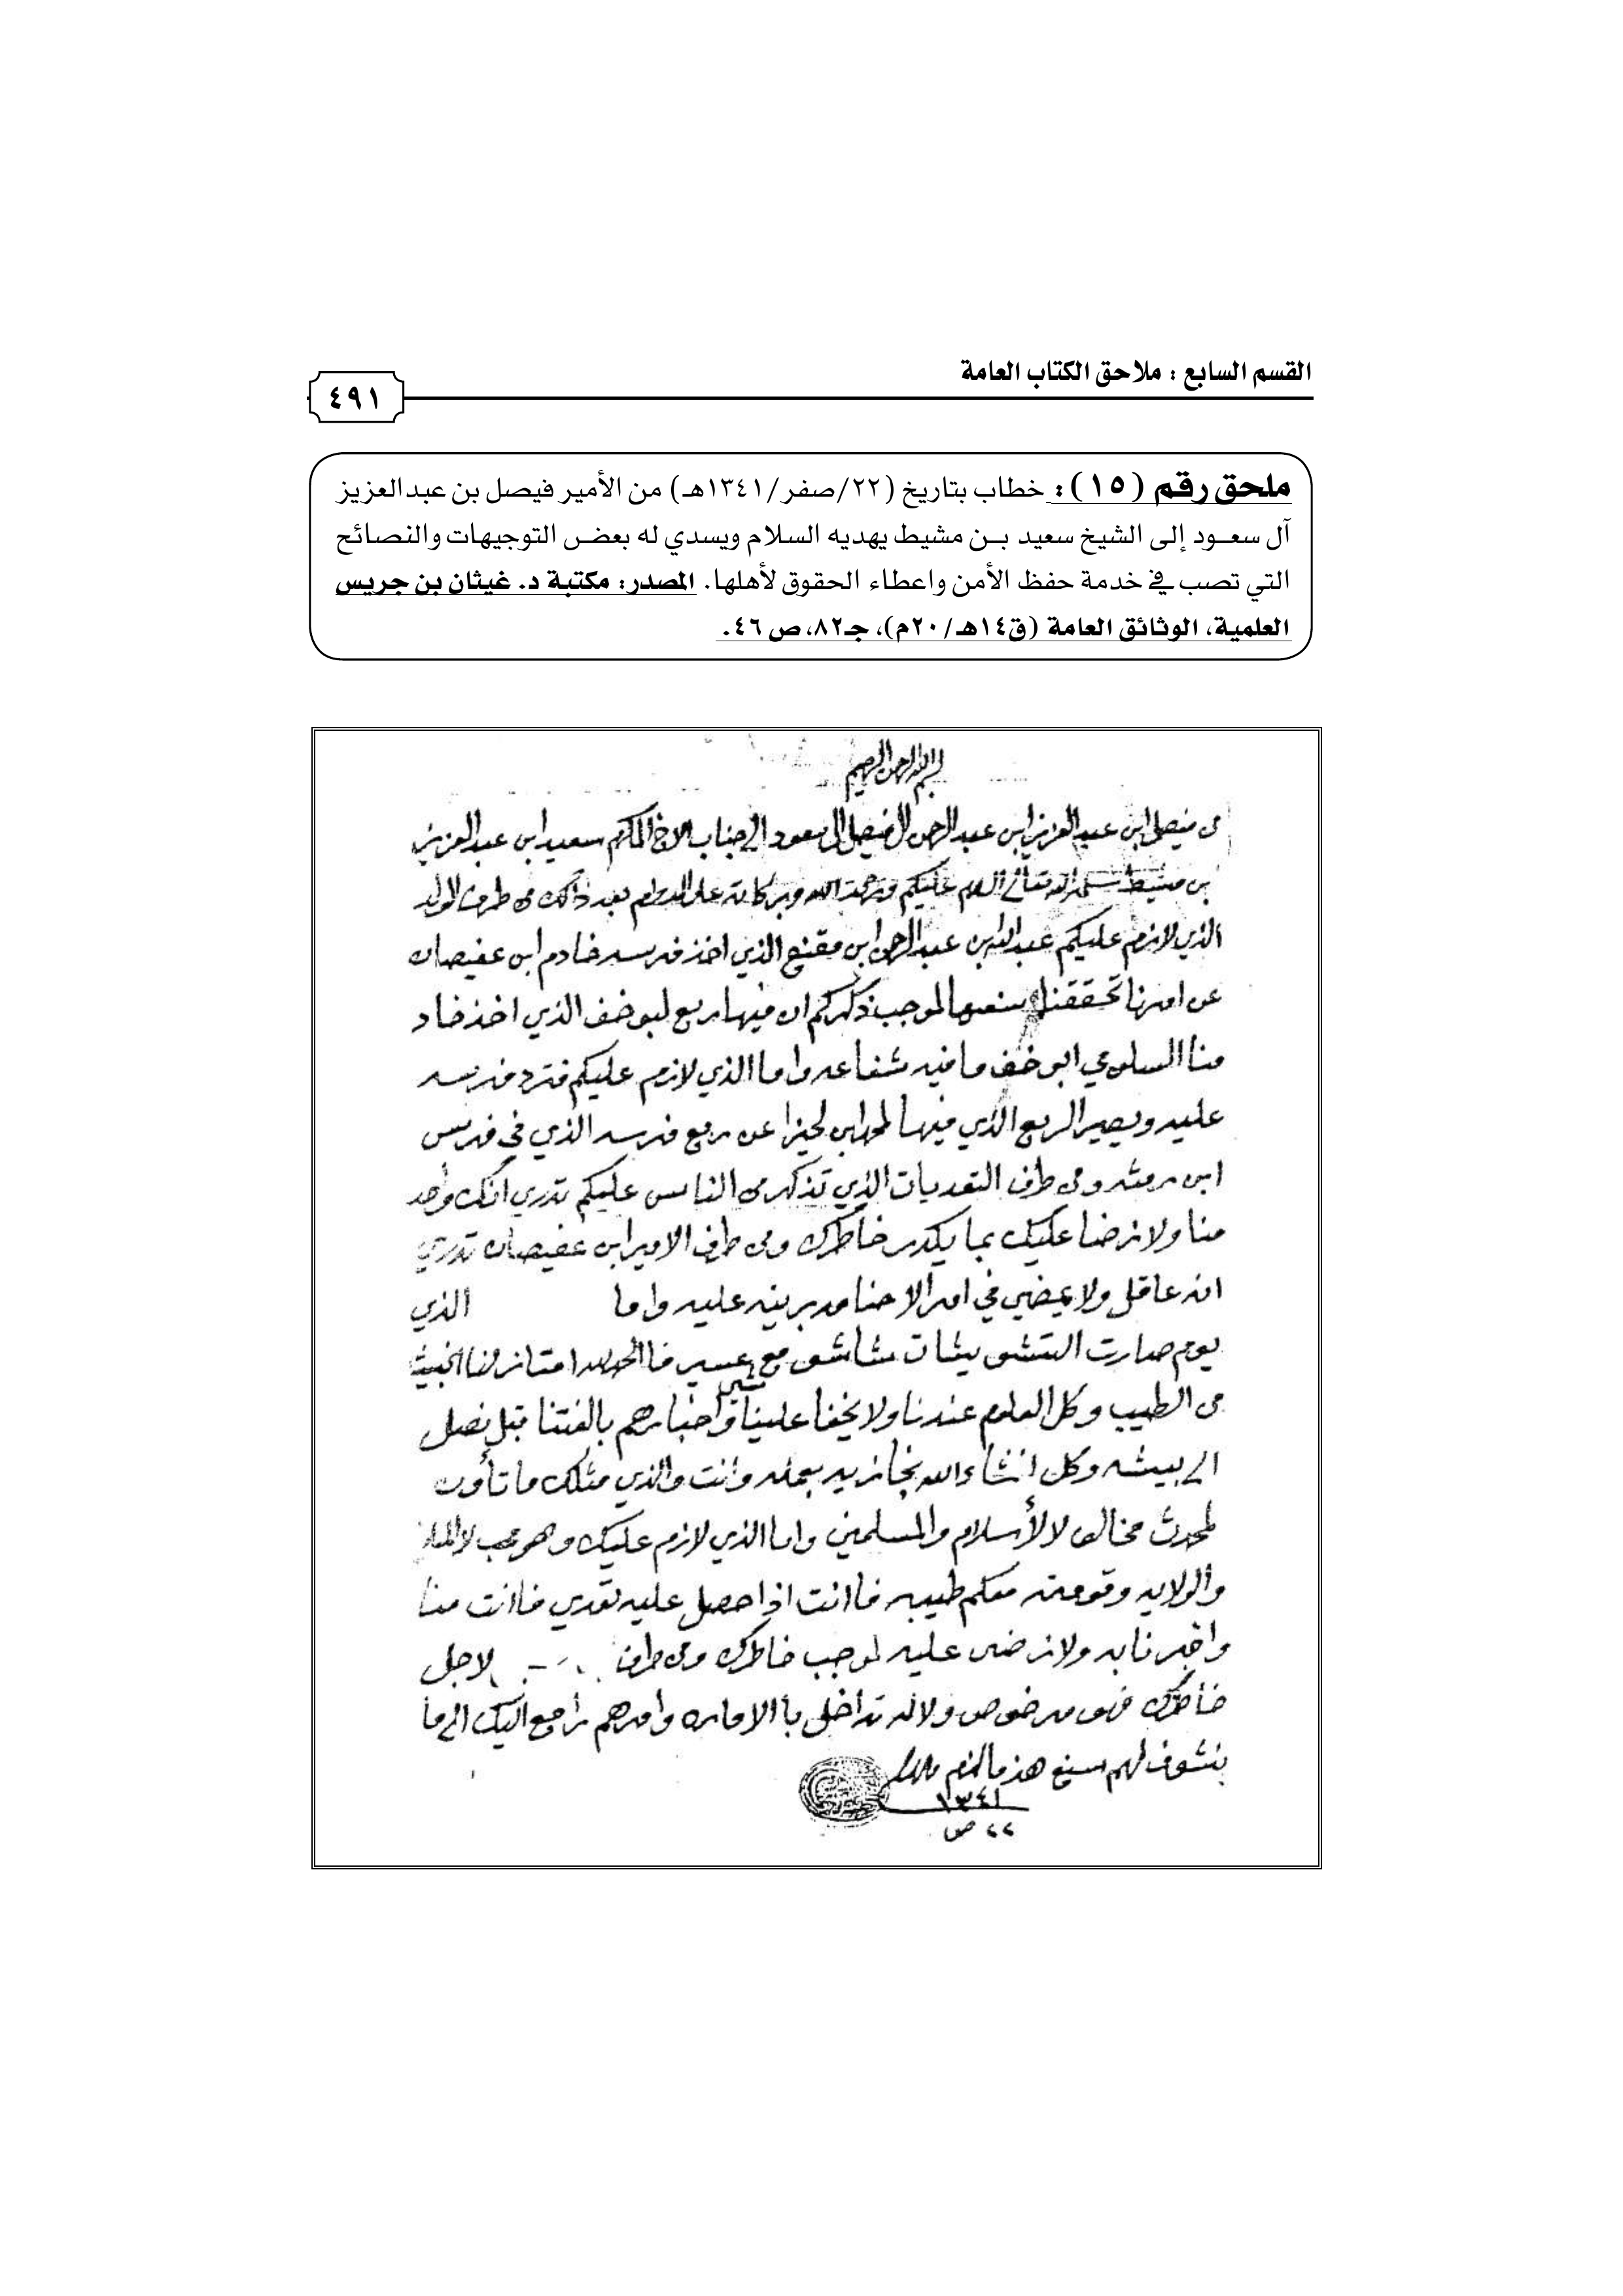 القسم السابع : ملاحق الكتاب العامة
٤٩١
ملحق رقم (١٥): خطاب بتاريخ (٢٢/صفر/١٣٤١هـ) من الأمير فيصل بن عبدالعزيز
آل سعود إلى الشيخ سعيد بن مشيط يهديه السلام ويسدي له بعض التوجيهات والنصائح
التي تصب في خدمة حفظ الأمن واعطاء الحقوق لأهلها. المصدر: مكتبة د. غيثان بن جريس
العلمية، الوثائق العامة (ق١٤هـ/٢٠م)، جـ٨٢، ص ٤٦.
بسم الله الرحمن الرحيم
من فيصل ابن عبد العزيز ابن عبد الرحمن ال فيصل ال سعود الى جناب الاخ المكرم سعيد ابن عبد العزيز
بن مشيط سلمه الله تعالى السلام عليكم ورحمة الله وبركاته على الدوام بعد ذالك من طرف
الذي لازم عليكم عبد الله ابن عبد الرحمن ابن مقنع الذي اخذ فرسه خادم ابن عفيصان
عن امرنا تحققنا لموجب ذكركم ان فيها ربع لبو خف الذي اخذ خاد
منا ابو خف ما فيه شفاعه واما الذي لازم عليكم فترد فرسه
عليه ويصير الربع الذي فيها عن ربع فرسه الذي في فرس
ابن ومن طرف التعديات الذي تذكر من الناس عليكم تدري انك واحد
منا ولا نرضا عليك بما يكدر خاطرك ومن طرف الامير ابن عفيصان تدري
انه عاقل ولا يمضي في امر الا حنا عليه واما الذي
يوم صارت مع عسير فا الحمد لله امتاز لنا الخبيث
من الطيب وكل العلوم عندنا ولا يخفا علينا واخبارهم بالفتنا قبل نصل
الى بيشه وكل انشاء الله نجازيه بعمله وانت والذي مثلك ما تأوون
لمحدث مخالف لالأسلام والمسلمين واما الذي لازم عليك وهو
والولايه معكم طيبه فا انت اذا حصل عليه تعدي فا انت منا
واخبرنا به ولا نرضى عليه لموجب خاطرك ومن طرف لاجل
خاطرك فهو مرخوص ولا له تداخل با الاماره وامرهم راجع اليك الى ما
بنشوف لهم سنع هذا ما لزم والسلام
١٣٤١
٢٢ ص